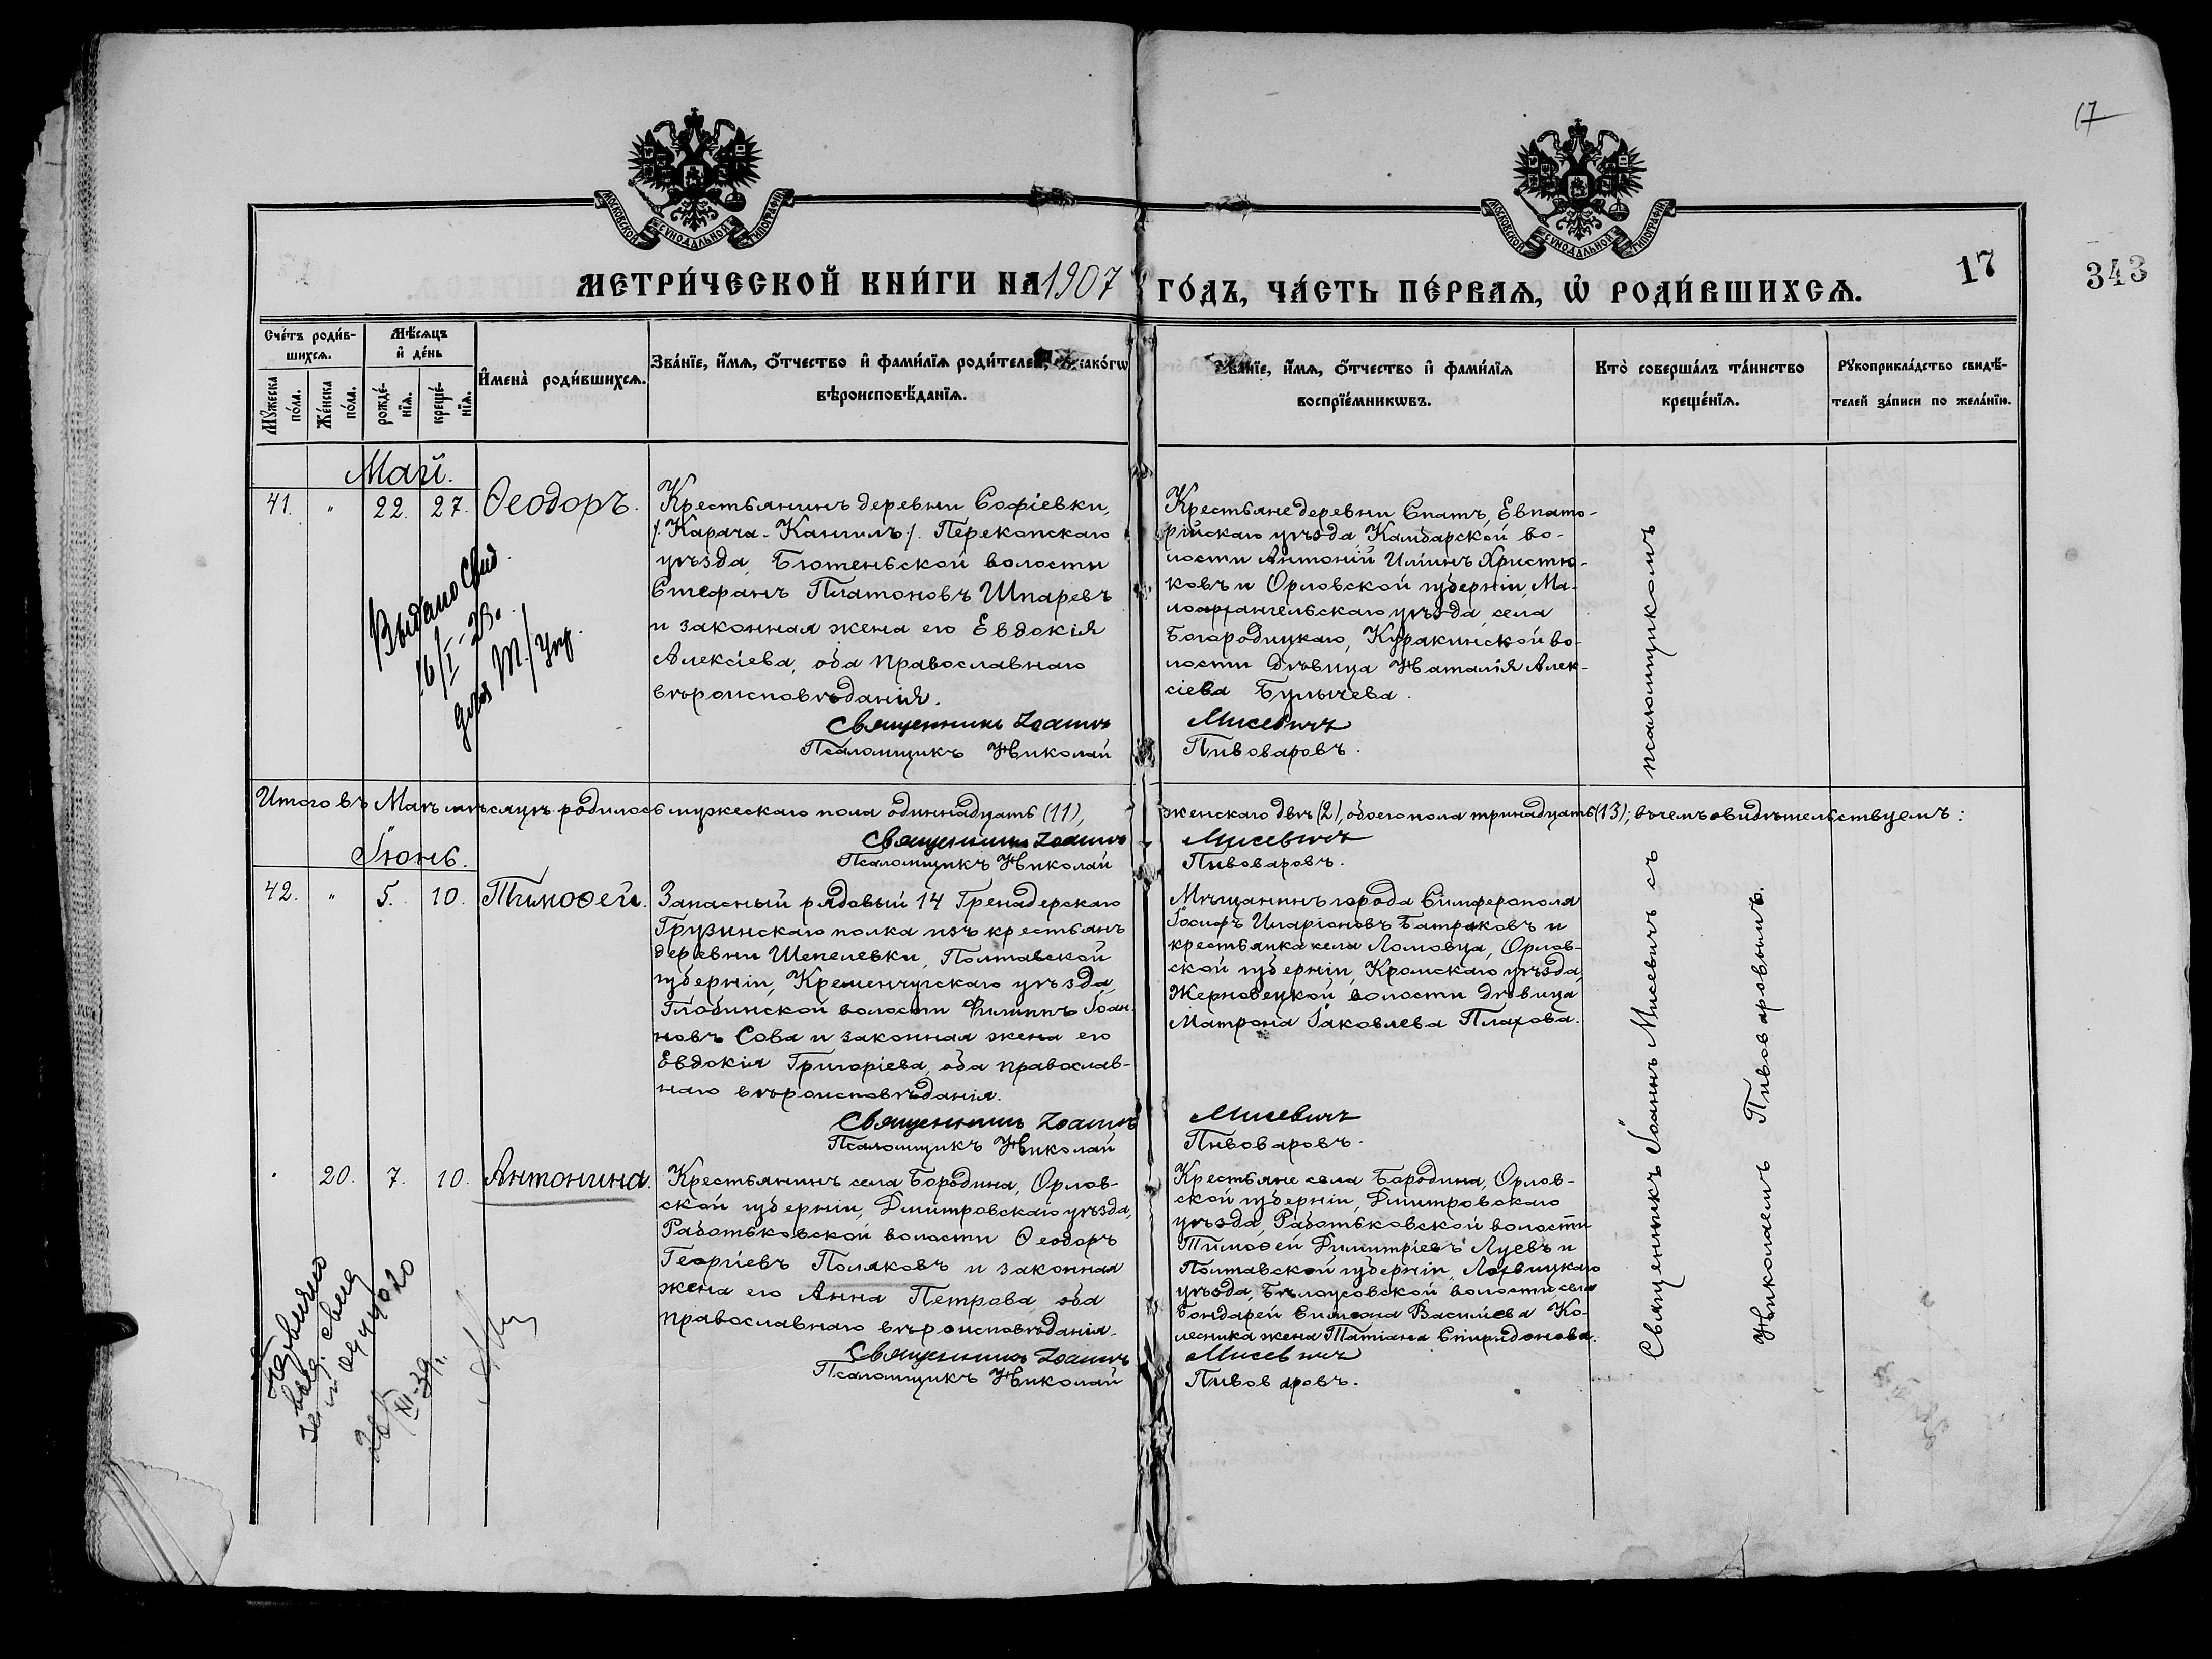 17
МОСКОВСКОЙ СѴНОДАЛЬНОЙ ТИПОГРАФІИ
МОСКОВСКОЙ СѴНОДАЛЬНОЙ ТИПОГРАФІИ
МЕТРИ́ЧЕСКОЙ КНИ́ГИ НА 1907 ГО́ДЪ, ЧА́СТЬ ПЕ́РВАѦ, Ѡ҆ РОДИ́ВШИХСѦ.
17
343
Сче́тъ роди́в-
шихсѧ.
Мꙋ́жеска
по́ла.
Же́нска
по́ла.
Мѣ́сѧцъ
и҆ де́нь
рожде́-
нїѧ.
креще́-
нїѧ.
И҆мена̀ роди́вшихсѧ.
Зва́нїе, и҆́мѧ, ѻ҆́тчество и҆ фами́лїѧ роди́телей, и҆ како́гѡ
вѣроисповѣ́данїѧ.
Зва́нїе, и҆́мѧ, ѻ҆́тчество и҆ фами́лїѧ
воспрїе́мникѡвъ.
Кто̀ соверша́лъ та́инство
креще́нїѧ.
Рꙋкоприкла́дство свидѣ́-
телей за́писи по жела́нїю.
Май.
41. " 22. 27. Ѳеодоръ.
Крестьянинъ деревни Софіевки,
/. Карача-Кангилъ ./. Перекопскаго
уѣзда, Бютеньской волости
Стефанъ Платоновъ Шпаревъ
и законная жена его Евдокія
Алексіева, оба православнаго
вѣроисповѣданія.
Священникъ Іоаннъ
Псаломщикъ Николай
Крестьяне деревни Спатъ, Евпато-
рійскаго уѣзда, Камбарской во-
лости Антоній Ильинъ Христю-
ковъ и Орловской губерніи, Ма-
лоархангельскаго уѣзда, села
Богородицкаго, Куракинской во-
лости дѣвица Наталія Алек-
сіева Булычева.
Мисевичъ
Пивоваровъ.
Выдано Свид.
16/I-28.
Итого въ Маѣ мѣсяцѣ родилось мужескаго пола одиннадцать (11), женскаго двѣ (2), обоего пола тринадцать (13); въ чемъ свидѣтельствуемъ:
Священникъ Іоаннъ Мисевичъ
Псаломщикъ Николай Пивоваровъ.
Іюнь.
42. " 5. 10. Тимоѳей.
Запасный рядовый 14 Гренадерскаго
Грузинскаго полка изъ крестьянъ
деревни Шепелевки, Полтавской
губерніи, Кременчугскаго уѣзда,
Глобинской волости Филиппъ Іоан-
новъ Сова и законная жена его
Евдокія Григоріева, оба православ-
наго вѣроисповѣданія.
Священникъ Іоаннъ
Псаломщикъ Николай
Мѣщанинъ города Симферополя
Іосифъ Иларіоновъ Батраковъ и
крестьянка села Ломовца, Орлов-
ской губерніи, Кромскаго уѣзда,
Жерновецкой волости дѣвица
Матрона Іаковлева Плахова.
Мисевичъ
Пивоваровъ.
20. 7. 10. Антонина.
Крестьянинъ села Бородина, Орлов-
ской губерніи, Дмитровскаго уѣзда,
Работьковской волости Ѳеодоръ
Георгіевъ Поляковъ и законная
жена его Анна Петрова, оба
православнаго вѣроисповѣданія.
Священникъ Іоаннъ
Псаломщикъ Николай
Крестьяне села Бородина, Орлов-
ской губерніи, Дмитровскаго
уѣзда, Работьковской волости
Тимоѳей Димитріевъ Луевъ и
Полтавской губерніи, Лохвицкаго
уѣзда, Бѣлоусовской волости села
Бондарей Симеона Василіева Ко-
лесника жена Татіана Спиридонова.
Мисевичъ
Пивоваровъ.
Священникъ Іоаннъ Мисевичъ съ псаломщикомъ
Николаемъ Пивоваровымъ.